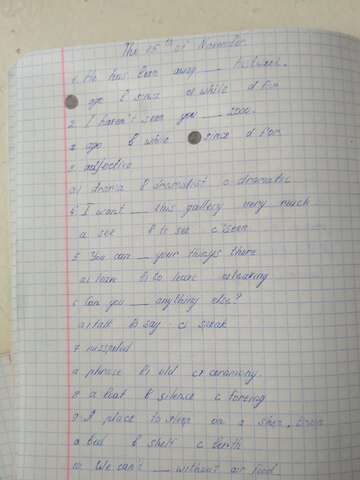 The 15th of November
1. He has been away ___
ago b since c while d for
2. I haven't seen you ___ 2000.
a ago b while c since d for
3. adjective
a) drama b dramatist c dramatic
4. I want ___ this gallery very much
a see b to see c seen
5. You can ___ your things there
b) to leave
6. Can you ___ anything else?
a) talk b) say c) speak
7. misspelled
a phrase b) old c) ceremony.
8. a b silence c
9. A place to sleep on a ship, train
a bed b shelf c berth
10. We can't ___ without air, food